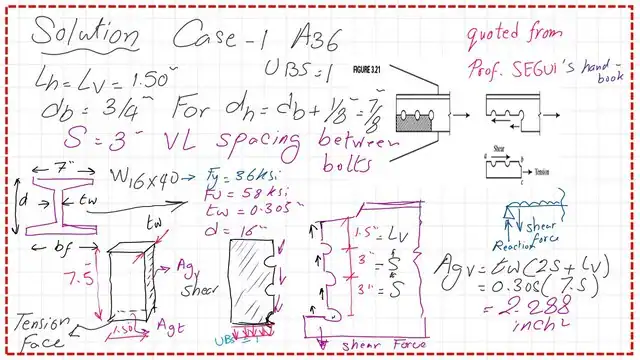 Solution Case-1 A36
quoted from
Prof. SEGUI's hand-
book
Lh = Lv = 1.50"
UBS=1
FIGURE 3.21
db = 3/4" For dh = db + 1/8" = 7/8"
S = 3" VL spacing between
bolts
Shear
a
b
c
Tension
7"
d
tw
bf
W16x40
Fy = 36ksi
Fu = 58 ksi
tw = 0.305"
d = 16"
tw
7.5"
Agv
shear
1.50"
Agt
Tension
Face
UBS = 1
1.5" = Lv
3" = S
3" = S
shear Force
shear
force
Reaction
Agv = tw(2S + Lv)
= 0.305(7.5)
= 2.288
inch2